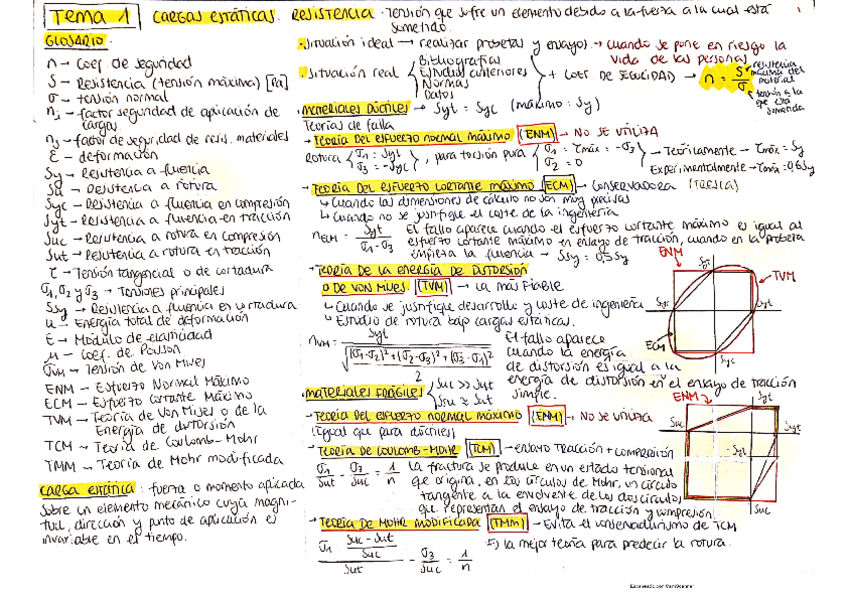 Tema 1 CARGAS ESTÁTICAS. RESISTENCIA · Tensión que sufre un elemento debido a la fuerza a la cual está sometido.
GLOSARIO.
n → Coef. de seguridad
S → Resistencia (tensión máxima) [Pa]
σ → tensión normal
nj → factor seguridad de aplicación de cargas.
ns → factor de seguridad de resis. materiales
ε → deformación
Sy → Resistencia a fluencia
Su → Resistencia a rotura
Syc → Resistencia a fluencia en compresión
Syt → Resistencia a fluencia en tracción
Suc → Resistencia a rotura en compresión
Sut → Resistencia a rotura en tracción
τ → Tensión tangencial o de cortadura
σ1, σ2 y σ3 → Tensiones principales
Ssy → Resistencia a fluencia en cortadura
u → Energía total de deformación
E → Módulo de elasticidad
μ → Coef. de Poisson
σVM → Tensión de Von Mises
ENM → Esfuerzo Normal Máximo
ECM → Esfuerzo Cortante Máximo
TVM → Teoría de Von Mises o de la Energía de distorsión
TCM → Teoría de Coulomb-Mohr
TMM → Teoría de Mohr modificada
CARGA ESTÁTICA: fuerza o momento aplicada
sobre un elemento mecánico cuya magni-
tud, dirección y punto de aplicación es
invariable en el tiempo.
· Situación ideal → realizar probetas y ensayos. → cuando se pone en riesgo la vida de las personas
· Situación real
Bibliografías
Estudios anteriores
Normas
Datos
+ COEF. DE SEGURIDAD → n = S/σ
resistencia máxima del material
tensión a la que está sometida
· MATERIALES DÚCTILES → Syt = Syc (máximo: Sy)
Teorías de falla
· TEORÍA DEL ESFUERZO NORMAL MÁXIMO (ENM) → NO SE UTILIZA
Rotura { σ1 = Syt
σ3 = -Syc
, para torsión pura { σ1 = τmáx = -σ3
σ2 = 0
→ Teóricamente → τmáx = Sy
Experimentalmente → τmáx = 0,6Sy
· TEORÍA DEL ESFUERZO CORTANTE MÁXIMO (ECM) → CONSERVADORA (TRESCA)
↳ Cuando las dimensiones de cálculo no son muy precisas
↳ Cuando no se justifique el coste de la ingeniería
nECM = Syt / σ1-σ3
El fallo aparece cuando el esfuerzo cortante máximo es igual al
esfuerzo cortante máximo en ensayo de tracción, cuando en la probeta
empieza la fluencia → Ssy = 0,5Sy
· TEORÍA DE LA ENERGÍA DE DISTORSIÓN
O DE VON MISES. (TVM) → LA MÁS FIABLE
↳ Cuando se justifique desarrollo y coste de ingeniería
↳ Estudio de rotura bajo cargas estáticas.
nVM = Syt / √((σ1-σ2)² + (σ2-σ3)² + (σ3-σ1)² / 2)
El fallo aparece
cuando la energía
de distorsión es igual a la
energía de distorsión en el ensayo de tracción
simple.
ENM
TVM
ECM
Syt
Syc
Syt
Syc
· MATERIALES FRÁGILES { Suc >> Sut
· TEORÍA DEL ESFUERZO NORMAL MÁXIMO (ENM) → NO SE UTILIZA
(igual que para dúctiles)
· TEORÍA DE COULOMB-MOHR (TCM) → ENSAYO TRACCIÓN + COMPRESIÓN
σ1/Sut - σ3/Suc = 1/n
La fractura se produce en un estado tensional
que origina, en los círculos de Mohr, un círculo
tangente a la envolvente de los dos círculos
que representan el ensayo de tracción y compresión.
ENM
Suc
Syt
Suc
· TEORÍA DE MOHR MODIFICADA (TMM) → Evita el conservadurismo de TCM
Es la mejor teoría para predecir la rotura.
σ1 · (Suc - Sut / Suc) / Sut - σ3/Suc = 1/n
Escaneado por CamScanner